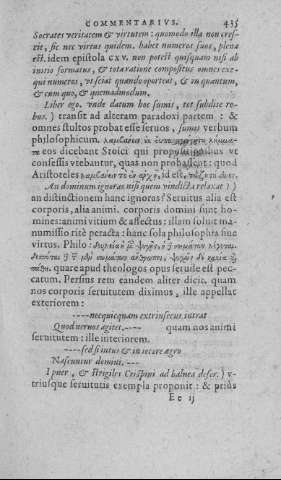 COMMENTARIVS. 435
Socrates veritatem & virtutem: quomodo illa non cres-
cit, sic nec virtus quidem. habet numeros suos, plena
est. idem epistola CXV. non potest quisquam nisi ab
initio formatus, & tota ratione compositus omnes exe-
qui numeros, vt sciat quando oporteat, & in quantum,
& cum quo, & quemadmodum.
Liber ego. vnde datum hoc sumis, tot subdite re-
bus?) transit ad alteram paradoxi partem: &
omnes stultos probat esse seruos, sumis verbum
philosophicum.
eos dicebant Stoici qui propositionibus vt
confessis vtebantur, quas non probassent: quod
Aristoteles λαμβάνειν τὸ ἐν ἀρχῇ, id est,
An dominum ignoras nisi quem vindicta relaxat?)
an distinctionem hanc ignoras? Seruitus alia est
corporis, alia animi. corporis domini sunt ho-
mines: animi vitium & affectus: illam soluit ma-
numissio ritè peracta: hanc sola philosophia siue
virtus. Philo:
quare apud theologos opus seruile est pec-
catum. Persius rem eandem aliter dicit. quam
nos corporis seruitutem diximus, ille appellat
exteriorem:
----nec quicquam extrinsecus intrat
Quod neruos agitet.---- quam nos animi
seruitutem: ille interiorem.
----sed si intus & in iecore ægro
Nascuntur domini.---
I puer, & strigiles Crispini ad balnea defer.) v-
triusque seruitutis exempla proponit: & priùs
Ee ij